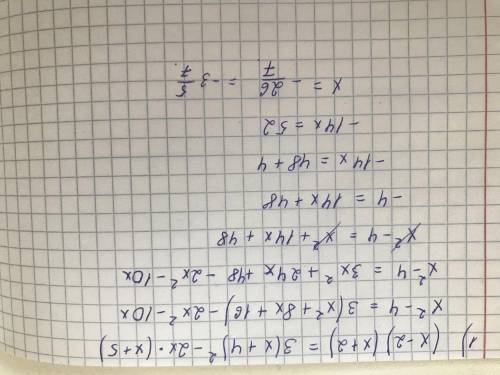 1) (x-2)(x+2) = 3(x+4)² - 2x·(x+5)
x²-4 = 3(x²+8x+16) - 2x² - 10x
x²-4 = 3x² + 24x + 48 - 2x² - 10x
x²-4 = x² + 14x + 48
-4 = 14x + 48
-14x = 48 + 4
-14x = 52
x = - 26/7 = -3 5/7